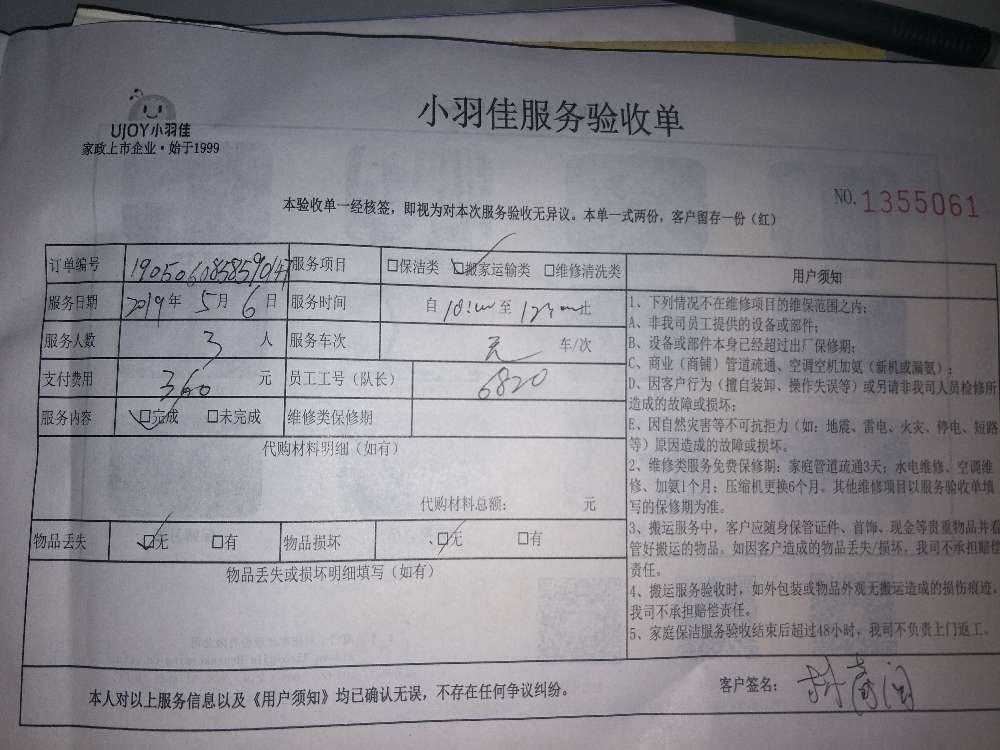 UJOY小羽佳
家政上市企业·始于1999
小羽佳服务验收单
NO.1355061
本验收单一经核签，即视为对本次服务验收无异议。本单一式两份，客户留存一份（红）
订单编号 服务项目 □保洁类 □搬家运输类 □维修清洗类
服务日期 2019年5月6日 服务时间 自 10:00 至 止
服务人数 3 人 服务车次 车/次
支付费用 360 元 员工工号（队长） 6820
服务内容 □完成 □未完成 维修类保修期
代购材料明细（如有）
代购材料总额： 元
物品丢失 □无 □有 物品损坏 □无 □有
物品丢失或损坏明细填写（如有）
用户须知
1、下列情况不在维修项目的维保范围之内：
A、非我司员工提供的设备或部件；
B、设备或部件本身已经超过出厂保修期；
C、商业（商铺）管道疏通、空调空机加氨（新机或漏氨）；
D、因客户行为（擅自装卸、操作失误等）或另请非我司人员检修所
造成的故障或损坏；
E、因自然灾害等不可抗拒力（如：地震、雷电、火灾、停电、短路
等）原因造成的故障或损坏。
2、维修类服务免费保修期：家庭管道疏通3天；水电维修、空调维
修、加氨1个月；压缩机更换6个月。其他维修项目以服务验收单填
写的保修期为准。
3、搬运服务中，客户应随身保管证件、首饰、现金等贵重物品并看
管好搬运的物品。如因客户造成的物品丢失/损坏，我司不承担赔偿
责任。
4、搬运服务验收时，如外包装或物品外观无搬运造成的损伤痕迹，
我司不承担赔偿责任。
5、家庭保洁服务验收结束后超过48小时，我司不负责上门返工。
本人对以上服务信息以及《用户须知》均已确认无误，不存在任何争议纠纷。
客户签名：